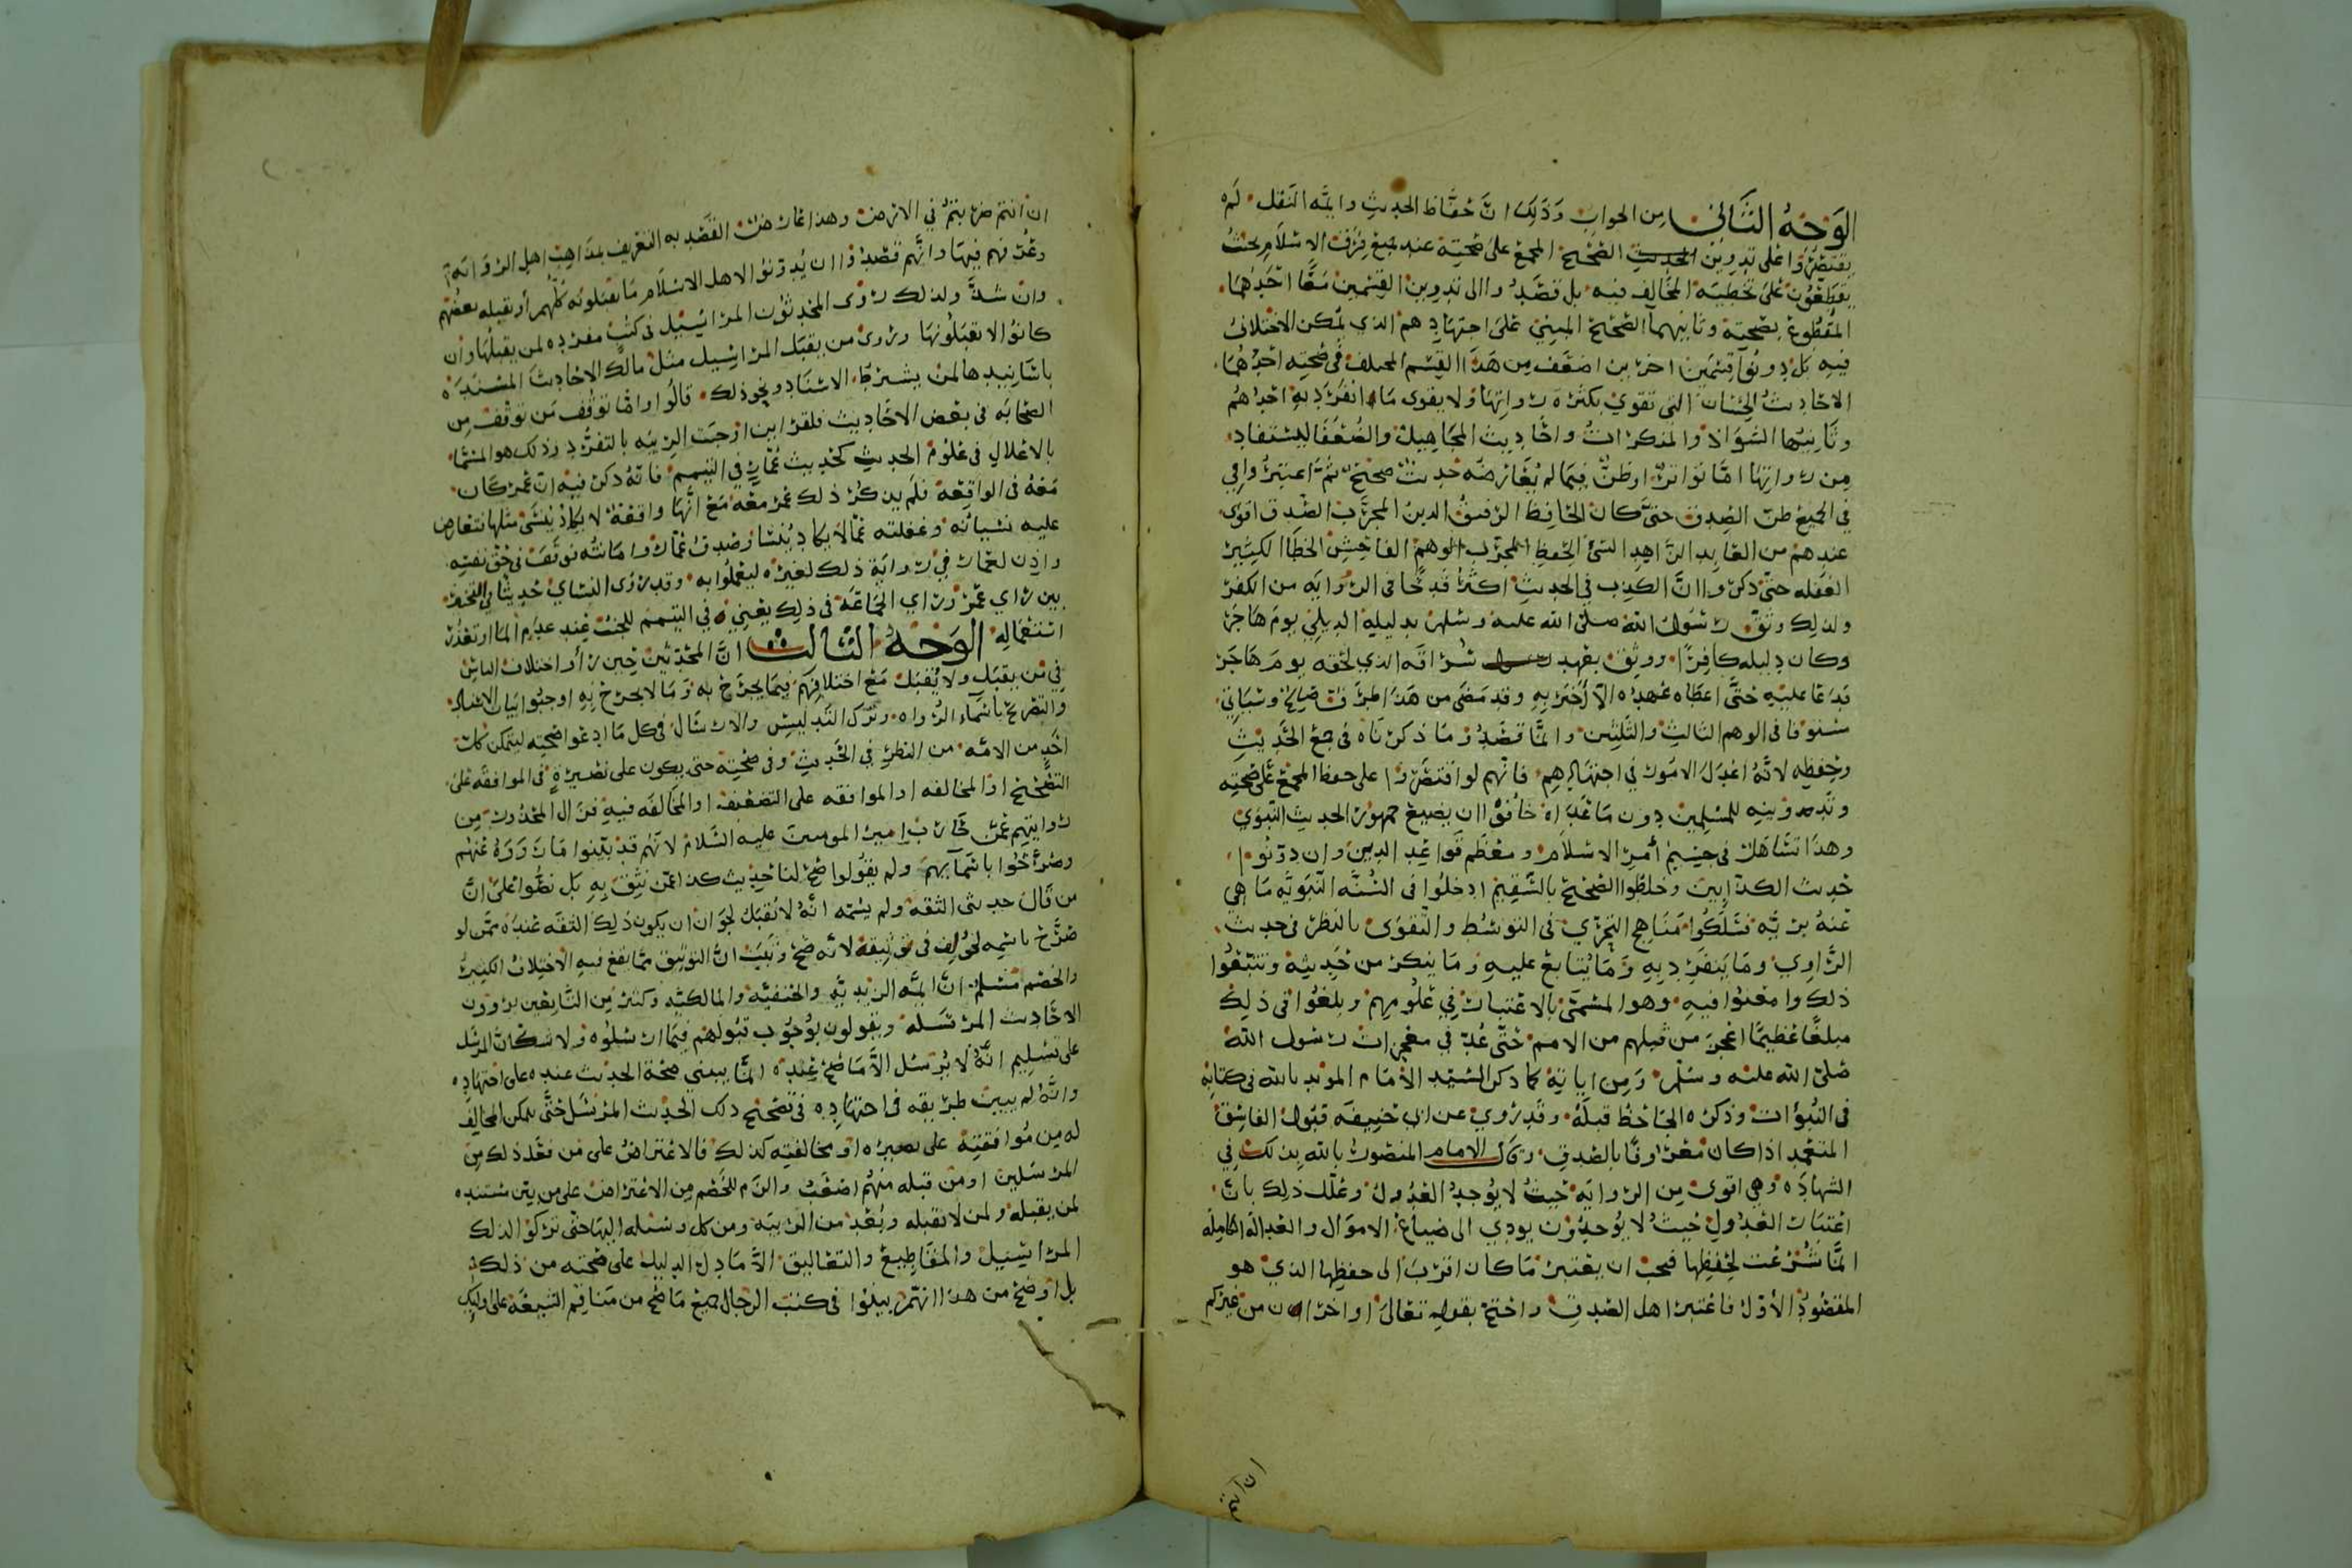 الوَجْهُ الثَّاني مِن الجواب وَذَلِكَ انَّ حُفَّاظ الحديثِ وايمَّه النَقل لَم
يقتَصِرُوا على تدوين الحديث الصَّحيح المجمَع على صحتِه عند جميع فِرَق الاسْلَام بحَيثُ
يَقطَعُونَ على تخطِيَه المخالِف فيه بل قصَدُوا الى تدوين القِسْمَين مَعًا احَدُهُمَا
المقطُوع بصحته وثانيهما الصَّحيح المبنِيّ على اجتِهَادِهم الذي يمكن الاختلافُ
فيه بَل دونُوا قِسْمَين اخرَين اضعَف مِن هَذا القِسْم المختلف في صحتِه احَدُهُمَا
الاحَاديثُ الحِسَان التي تقوى بكَثرَه رواتِهَا وَلا يقوى مَا انفرَدَ بهِ احَدُهُم
وثَانيهُا الشوَاذ والمنكرَاتُ واحَاديث المجَاهِيل والضُعَفا ليستفاد
مِن رواتِهَا امَّا تواترٌ اوظنٌّ فِيمَا لم يُعَارضه حَديثٌ صحيحٌ ثمَّ اعتبرُوا في
في الجميع ظنّ الصِدق حتَّى كان الحَافِظ الرقيقُ الدين المجرَّب الصِّدق اقوى
عندهم من العَابد الزاهِد السَّئ الحِفظِ المجرَّب الوهم الفاحِش الخطَا الكثير
الغفله حتّى ذكروا انَّ الكذب في الحديثِ اكثرُ قدحًا في الرِّوَايَه من الكفر
ولذلِك وثقَ رسُول الله صلى الله عليه وسلم بدليلِه الدِيلِيِ يومَ هَاجَرَ
وكان دليله كافِرًا ووثِق بعهد سُرَاقَه الذي لحقه يومَ هَاجَرَ
فدَعَا عليهِ حتَّى اعطَاه عهدَه الّا يُخبَر بِهِ وقد مَضَى من هَذا طرَفٌ صَالحٌ وسَيَاتي
مستوفا في الوهم الثالثِ والثلثين وانمَّا قصَدُوا مَا ذكرنَاه في جمع الحَدِيثِ
وحِفظِه لانَّهُ اعدَل الامُور في اجتهادِهِم فانَّهم لو اقتصَرُوا على حفظ المجمع عَلَى صحتِه
وتدوينِه للمُسْلِمين دون مَاعدَاه خافُوا ان يضيع جمهُور الحديثِ النّبَوي
وهذا تسَاهل في جسيم أمرِ الاسْلَام ومعظم قوَاعِدِ الدين وان دوّنُوا
حَديث الكذّابين وخلطُوا الصَّحيحَ بالسَّقيم ادخلُوا في السُّنَّه النّبَويَّه مَا هي
عَنهُ بريَّه فسَلكُوا مَنَاهِج التحرِّي في التوسُط والتّقوَى بالنظر في حَديث
الرَّاوي وَمَا يَنفرِد بِهِ وَمَا يُتابَع عليهِ وَمَا ينكر من حَدِيثِه وتتبعُوا
ذلك وامعنُوا فيهِ وهو المسمّى بالاعتبَار في عُلُومِهِم وبلغُوا في ذلِك
مبلغًا عظيمًا اعجز من قبلهم من الامم حتّى عُدّ في معجزات رسُول الله
صَلّى الله عليه وسلّم وَمِن اياتِهِ كما ذكر السّيّد الامَام المويد بالله في كتابِهِ
في النّبُوات وذكرَه الجَاحظُ قبلَهُ وقدرُوي عن ابي حَنِيفَه قبُولُ الفَاسِق
المتعمد اذا كان معرُوفًا بالصِدق وقال الامام المنصُور بالله بذلك في
الشهادَه وهي اقوى مِن الرِوايَه حيثُ لا يُوجدُ العُدُول وعُلّل ذلِك بانَّ
اعتِبَار العُدُولِ حَيثُ لا يُوجدُون يودي الى ضيَاع الاموَال والعَدالَه الكاملَه
انمّا شُرعَت لحِفظِها فيجب ان يعتبرَ مَا كان اقربَ الى حفظِها الذي هو
المقصُودُ الأوّل فاعتبرَ اهل الصِدق واحتج بقولِه تعَالى اواخران من غيركم
ان انتم
ان انتم ضربتمُ في الارض وهذا عَارضٌ القصد به التعريف بمذاهِب اهل الروَايَه
وعُرفهم فيهَا وانَّهم قصَدُوا ان يُدوّنوا لاهل الاسْلَام مَا يقبَلونَه كلّهُم أو يقبله بعضُهُم
وان شذَّ ولذلك روى المحدثون المرَاسِيل في كتبٍ مفردَه لمن يقبلُهَا وان
كانوا لا يقبَلُونهَا وروى من يقبَل المرَاسِيل مثل مالكٍ الاحَاديث المسْندَه
باسَانيدهَا لمن يشترط الاسْنَاد ونحو ذلك قالُوا وامّا توقف مَن توقف مِن
الصَّحَابَه في بعض الاحَاديث فلقرَاين اوجبَت الرِيبَه بالتفرُّد وذلك هو المسمَّا
بالاعلالِ في علُومُ الحديثِ كحَديث عَمَّارٍ في التيمم فانَّهُ ذكر فيه انَّ عُمر كان
معَهُ في الواقعَة فلَم يذكُر ذلك عُمر معَهُ مَعَ انَّهَا واقعَةٌ لا يكادُ يُنسَى مثلها فتعَارض
عليه نسيَانُه وغفلته عمَّا لايكَاد يُنسَا وصِدق عَمَّار وامَانتُه فوقَفَ في حَقّ نفسِه
واذِن لعَمَّار في روايَةِ ذلك لغيرِه ليعمَلُوا به وقد روى النسَاي حَديثًا في التخيير
بين رَاي عُمَر ورَاي الجَمَاعَه في ذلِك يَعنِي في التيممُ للجنُب عِند عدَم المَا اوتعذُّر
استعمَالِهِ الوَجْهُ الثالث انَّ المحَدّثين حِين رَأَوا اختلاف الناس
في مَن يقبَل ولا يُقبَل مَعَ اختلافِهِم فيمَا يجرَح به وَمَا لا يجرَح بِهِ اوجبُوا بيَان الاسنادِ
والتصريح بأسْمَاءِ الرُواه وترك التَدليس والارسَال في كل مَا ادعوا صحته ليتمكن كل
احَدٍ من الامَّه من النظرِ في الحَديثِ وفي صحَّتِه حتى يكون على بصيرةٍ في الموافقَه على
التصْحيحِ او المخالفه او الموافقه على التضعيفِ او المخالفَه فيهِ فزال المحذُور مِن
روايتِهِم عَمّن حَارَبَ امير المومنين عليه السَّلام لانَهُم قد بيّنوا مَا رَوَوهُ عَنهُم
وصَرَّحُوا باسْمَآئهم ولم يقُولوا صَح لنا حَديث كذا عمّن نَثِقُ بِهِ بل نصُّوا عَلى انَّ
من قال حدثني الثقه ولم يسَمّه انَّهُ لا يُقبَل لجَوَاز ان يكون ذلِك الثقَه عندَه ممَّن لو
صَرَّحَ باسْمِه لخُولِف في توثيقه لانّه صَحَّ وَثبَت انَّ التوثيق ممَّا يقع فيهِ الاختِلافُ الكثِيرُ
والخصْم مُسَلمٌ انَّ ايمّه الزيديّه والحنفيّه والمالكيّه وكثير مِن التَّابعِين يروون
الاحَاديث المرْسَلَه ويقولون بوُجُوب قبُولهم فيمَا ارسَلُوه ولا شكّ انَّ المرسِل
على تسْلِيم انَّهُ لا يُرسِل الاَّ مَا صَحَّ عِندَه انمّا يبني صحّة الحديث عنده على اجتهَادِه
وانّهُ لم يبين طريقه في اجتهادِه في تصحيح ذلك الحديث المرسَل حَتَّى يتمكن المخالف
له مِن مُوافقتِه على بصيره او مخالفتِه كذلك فالاعترَاض على مَن فعَل ذلك مِن
المرسَلين او من قبله منهُم اضعَفُ والزَم للخصْم مِن الاعترَاض على من بيّن سَندَه
لمن يقبله ولمن لا يقبله وبُعد من الريبَه ومن كل وسيله اليهَا حتَّى تركُوا لذلك
المرَاسيل والمقَاطِيع والتعَاليق الاَّ مَا دل الدليلُ على صحتِه من ذلك
بل اوضح من هذا انهُم بيَّنوا في كتب الرجال جميع مَا صَح من مَنَاقِم الشيعَة على اوليك